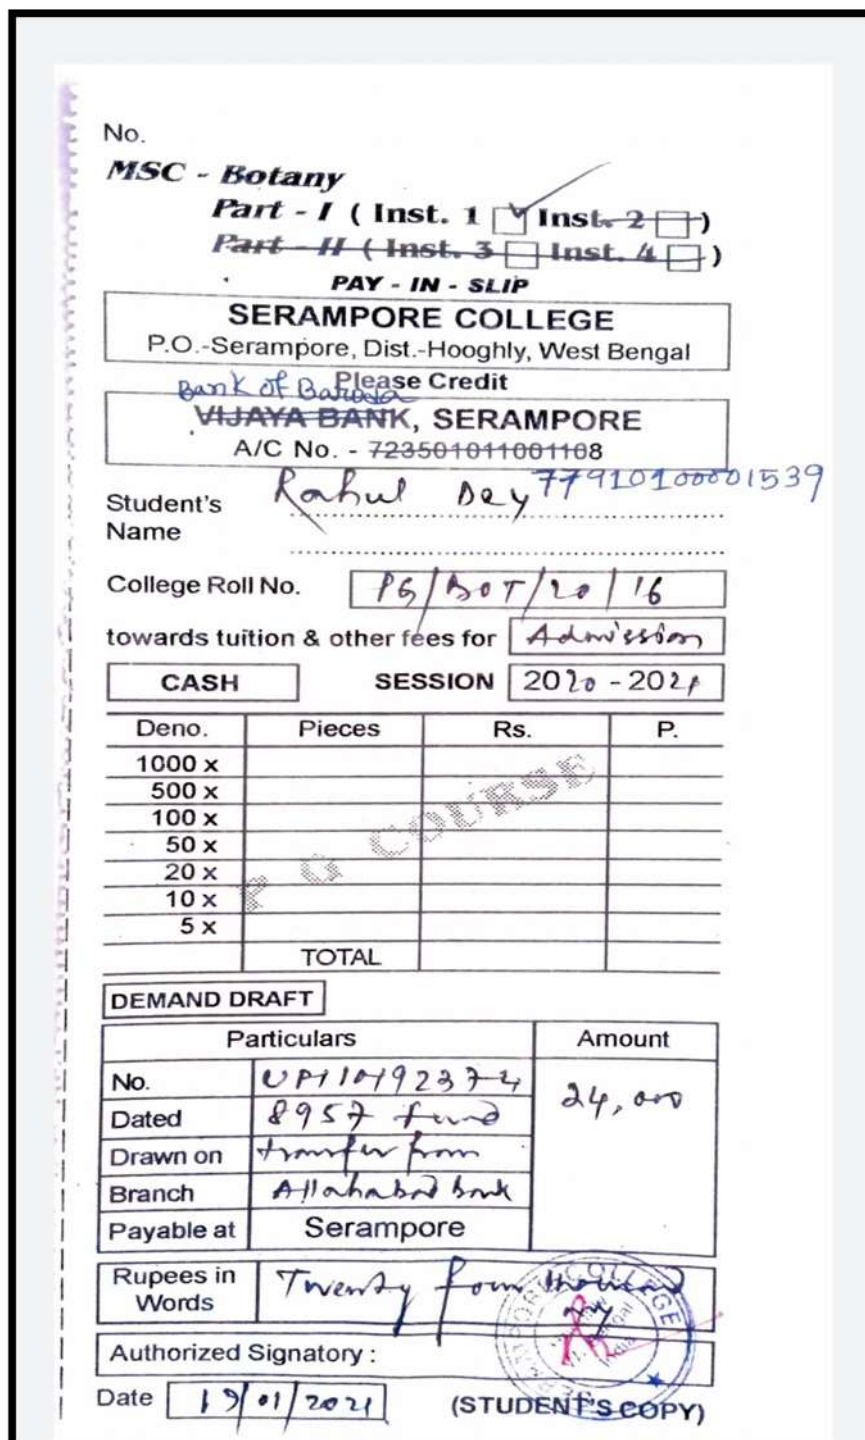 No.
MSC - Botany
Part - I ( Inst. 1 Inst. 2 )
Part - II ( Inst. 3 Inst. 4 )
PAY - IN - SLIP
SERAMPORE COLLEGE
P.O.-Serampore, Dist.-Hooghly, West Bengal
Please Credit
Bank of Baroda
VIJAYA BANK, SERAMPORE
A/C No. - 723501011001108
77910100001539
Student's Name Rahul Dey
College Roll No. PG/BOT/20/16
towards tuition & other fees for Admission
CASH SESSION 2020 - 2021
Deno. Pieces Rs. P.
1000 x
500 x
100 x
50 x
20 x
10 x
5 x
P G COURSE
TOTAL
DEMAND DRAFT
Particulars Amount
No. 24,000
Dated 8957 fund
Drawn on transfer from
Branch Allahabad bank
Payable at Serampore
Rupees in Words Twenty four thousand
SERAMPORE COLLEGE
Authorized Signatory :
Date 19/01/2021 (STUDENT'S COPY)